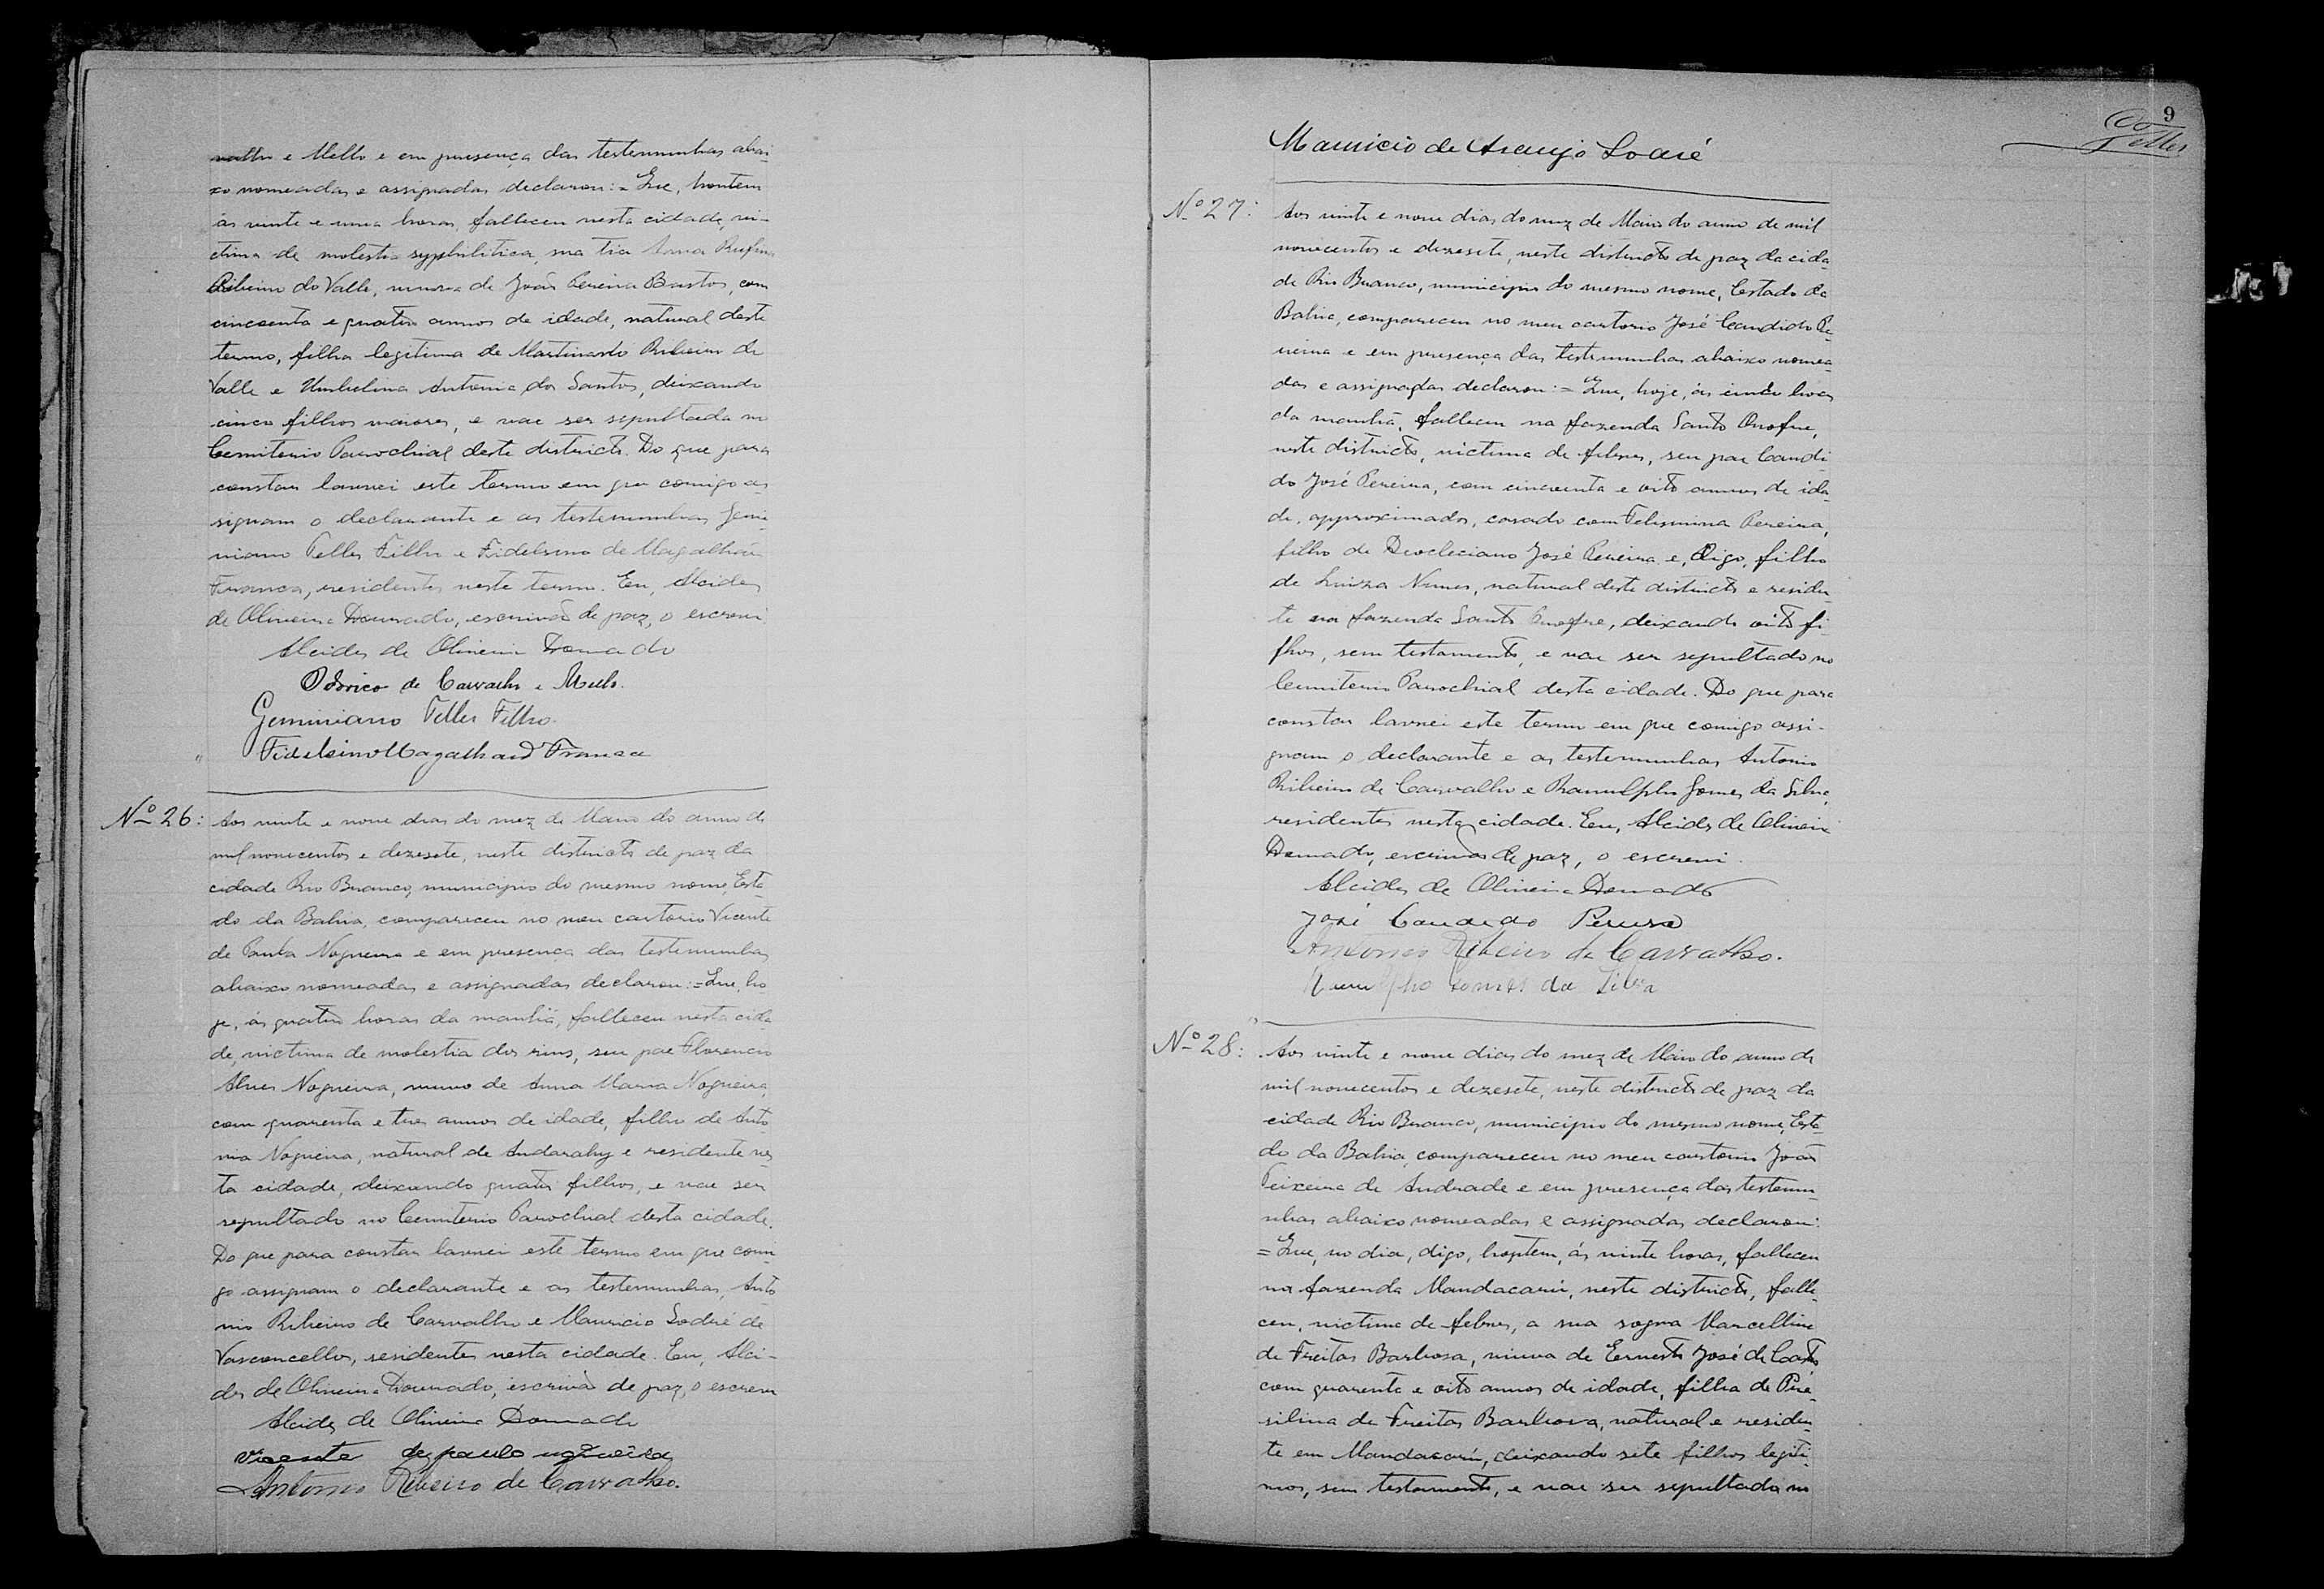 valho e Mello e em presença das testemunhas abai-
xo nomeadas e assignadas declarou:= Que, hontem
ás vinte e uma horas, falleceu nesta cidade, vi-
ctima de molestia syphilitica, sua tia Anna Rufina
Ribeiro do Valle, viuva de João Pereira Bastos, com
cincoenta e quatro annos de idade, natural deste
termo, filha legitima de Martiniano Ribeiro do
Valle e Umbelina Antonia dos Santos, deixando
cinco filhos maiores, e vae ser sepultada no
Cemiterio Parochial deste districto. Do que para
constar lavrei este termo em que comigo as-
signam o declarante e as testemunhas Gemi-
niano Telles Filho e Fidelsino de Magalhães
Franca, residentes neste termo. Eu, Alcides
de Oliveira Dourado, escrivão de paz, o escrevi
Alcides de Oliveira Dourado
Odorico de Carvalho e Mello.
Geminiano Telles Filho.
Fidelsino Magalhães Franca
Nº 26: Aos vinte e nove dias do mez de Maio do anno de
mil novecentos e dezesete, neste districto de paz da
cidade Rio Branco, municipio do mesmo nome, Esta-
do da Bahia, compareceu no meu cartorio Vicente
de Paula Nogueira e em presença das testemunhas
abaixo nomeadas e assignadas declarou:= Que, ho-
je, ás quatro horas da manhã, falleceu nesta cida-
de, victima de molestia dos rins, seu pae Florencio
Alves Nogueira, viuvo de Anna Maria Nogueira,
com quarenta e tres annos de idade, filho de Anto-
nia Nogueira, natural de Andarahy e residente nes-
ta cidade, deixando quatro filhos, e vae ser
sepultado no Cemiterio Parochial desta cidade.
Do que para constar lavrei este termo em que comi-
go assignam o declarante e as testemunhas, Anto-
nio Ribeiro de Carvalho e Mauricio Sodré de
Vasconcellos, residentes nesta cidade. Eu, Alci-
des de Oliveira Dourado, escrivão de paz, o escrevi
Alcides de Oliveira Dourado
Vicente de paulo nogueira
Antonio Ribeiro de Carvalho.
9
Telles
Mauricio de Araujo Sodré
Nº 27: Aos vinte e nove dias do mez de Maio do anno de mil
novecentos e dezesete, neste districto de paz da cida-
de Rio Branco, municipio do mesmo nome, Estado da
Bahia, compareceu no meu cartorio José Candido Pe-
reira e em presença das testemunhas abaixo nomea-
das e assignadas declarou:= Que, hoje, ás cinco horas
da manhã, falleceu na fazenda Santo Onofre,
neste districto, victima de febres, seu pae Candi-
do José Pereira, com cincoenta e oito annos de ida-
de, approximados, casado com Felismina Pereira,
filho de Deocleciano José Pereira e, Digo, filho
de Luiza Nunes, natural deste districto e residen-
te na fazenda Santo Onofre, deixando oito fi-
lhos, sem testamento, e vae ser sepultado no
Cemiterio Parochial desta cidade. Do que para
constar lavrei este termo em que comigo assi-
gnam o declarante e as testemunhas Antonio
Ribeiro de Carvalho e Ranulpho Gomes da Silva,
residentes nesta cidade. Eu, Alcides de Oliveira
Dourado, escrivão de paz, o escrevi.
Alcides de Oliveira Dourado
José Candido Pereira
Antonio Ribeiro de Carvalho.
Ranulpho Gomes da Silva
Nº 28: Aos vinte e nove dias do mez de Maio do anno de
mil novecentos e dezesete, neste districto de paz da
cidade Rio Branco, municipio do mesmo nome, Esta-
do da Bahia, compareceu no meu cartorio João
Teixeira de Andrade e em presença das testemu-
nhas abaixo nomeadas e assignadas declarou:
= Que, no dia, digo, hontem, ás vinte horas, falleceu
na fazenda Mandacarú, neste districto, falle-
ceu, victima de febres, a sua sogra Marcellina
de Freitas Barbosa, viuva de Ernesto José de Castro
com quarenta e oito annos de idade, filha de
de Freitas Barbosa, natural e residen-
te em Mandacarú, deixando sete filhos legiti-
mos, sem testamento, e vae ser sepultada no